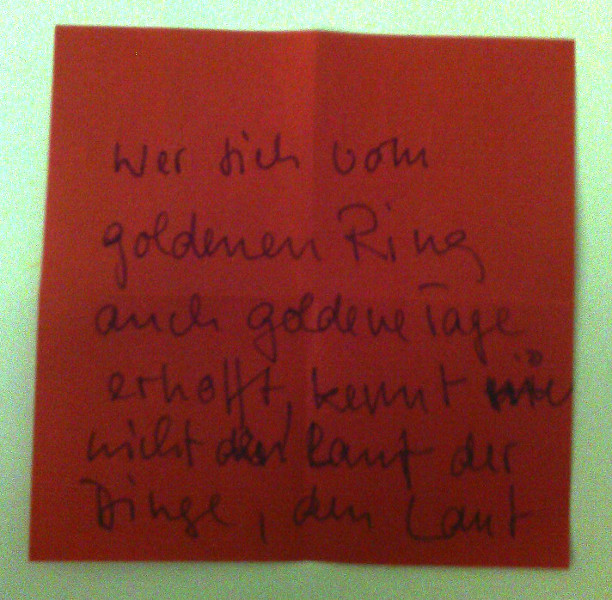 Wer sich vom
goldenen Ring
auch goldene Tage
erhofft, kennt
nicht den Lauf der
Dinge, den Lauf